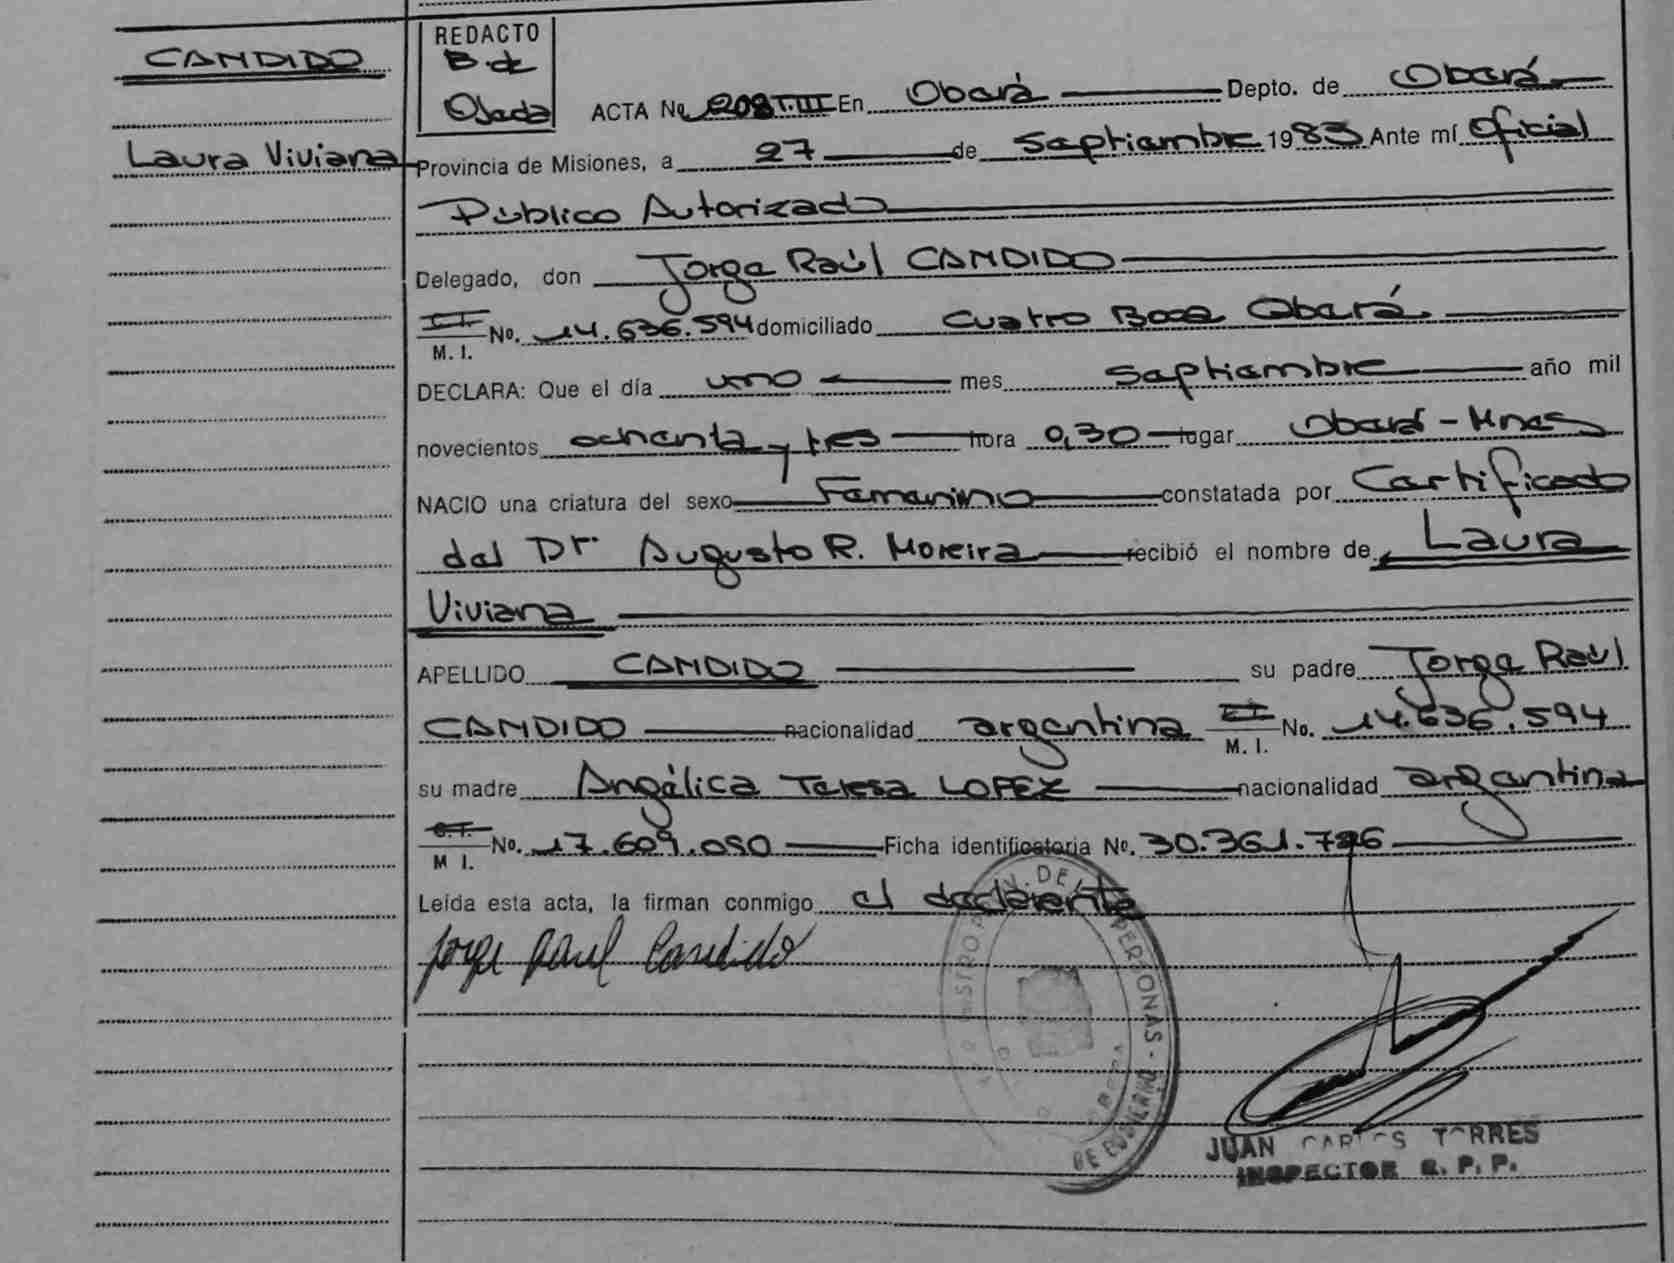 CANDIDO
Laura Viviana
REDACTO
B. de
Ojeda
ACTA No. 208 T.III En Oberá Depto. de Oberá
Provincia de Misiones, a 27 de Septiembre 1983 Ante mí Oficial
Público Autorizado
Delegado, don Jorge Raúl CANDIDO
M. I. No. 14.636.594 domiciliado Cuatro Boca Oberá
DECLARA: Que el día uno mes Septiembre año mil
novecientos ochenta y tres hora 0,30 lugar Oberá - Mnes
NACIO una criatura del sexo Femenino constatada por Certificado
del Dr. Augusto R. Moreira recibió el nombre de Laura
Viviana
APELLIDO CANDIDO su padre Jorge Raúl
CANDIDO nacionalidad argentina M. I. No. 14.636.594
su madre Angélica Teresa LOPEZ nacionalidad argentina
M I. No. 17.609.050 Ficha identificatoria No. 30.361.726
Leída esta acta, la firman conmigo el declarente
Jorge Raul Candido
DE PERSONAS -
DE GOBIERNO
JUAN CARLOS TORRES
INSPECTOR R. P. P.